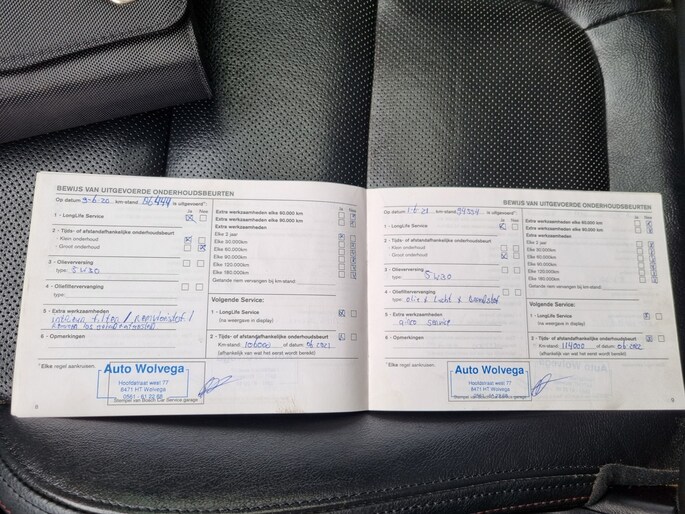 BEWIJS VAN UITGEVOERDE ONDERHOUDSBEURTEN
Op datum 9-6-20, km-stand. 86444 is uitgevoerd*:
Ja Nee
1 - LongLife Service
2 - Tijds- of afstandafhankelijke onderhoudsbeurt
- Klein onderhoud
- Groot onderhoud
3 - Olieverversing
type: 5W30
4 - Oliefilterververing
type:
5 - Extra werkzaamheden
6 - Opmerkingen
* Elke regel aankruisen.
Auto Wolvega
Hoofdstraat west 77
8471 HT Wolvega
0561 - 61 22 98
Stempel van Bosch Car Service garage
8
Ja Nee
Extra werkzaamheden elke 60.000 km
Extra werkzaamheden elke 90.000 km
Extra werkzaamheden
Elke 2 jaar
Elke 30.000km
Elke 60.000km
Elke 90.000km
Elke 120.000km
Elke 180.000km
Gelieve niem vervangen bij km-stand:
Volgende Service:
1 - LongLife Service
(na weergave in display)
2 - Tijds- of afstandafhankelijke onderhoudsbeurt
Km-stand: 106000 of datum: 06-2021
(afhankelijk van wat het eerst wordt bereikt)
BEWIJS VAN UITGEVOERDE ONDERHOUDSBEURTEN
Op datum km-stand. is uitgevoerd*:
Ja Nee
1 - LongLife Service
2 - Tijds- of afstandafhankelijke onderhoudsbeurt
- Klein onderhoud
- Groot onderhoud
3 - Olieverversing
type: 5W30
4 - Oliefilterververing
type: olie + Lucht + Brandstof
5 - Extra werkzaamheden
airco service
6 - Opmerkingen
* Elke regel aankruisen.
Auto Wolvega
Hoofdstraat west 77
8471 HT Wolvega
Stempel van Bosch Car Service garage
Ja Nee
Extra werkzaamheden elke 60.000 km
Extra werkzaamheden elke 90.000 km
Extra werkzaamheden
Elke 2 jaar
Elke 30.000km
Elke 60.000km
Elke 90.000km
Elke 120.000km
Elke 180.000km
Volgende Service:
1 - LongLife Service
(na weergave in display)
2 - Tijds- of afstandafhankelijke onderhoudsbeurt
Km-stand: 114000 of datum: 06-2022
(afhankelijk van wat het eerst wordt bereikt)
9